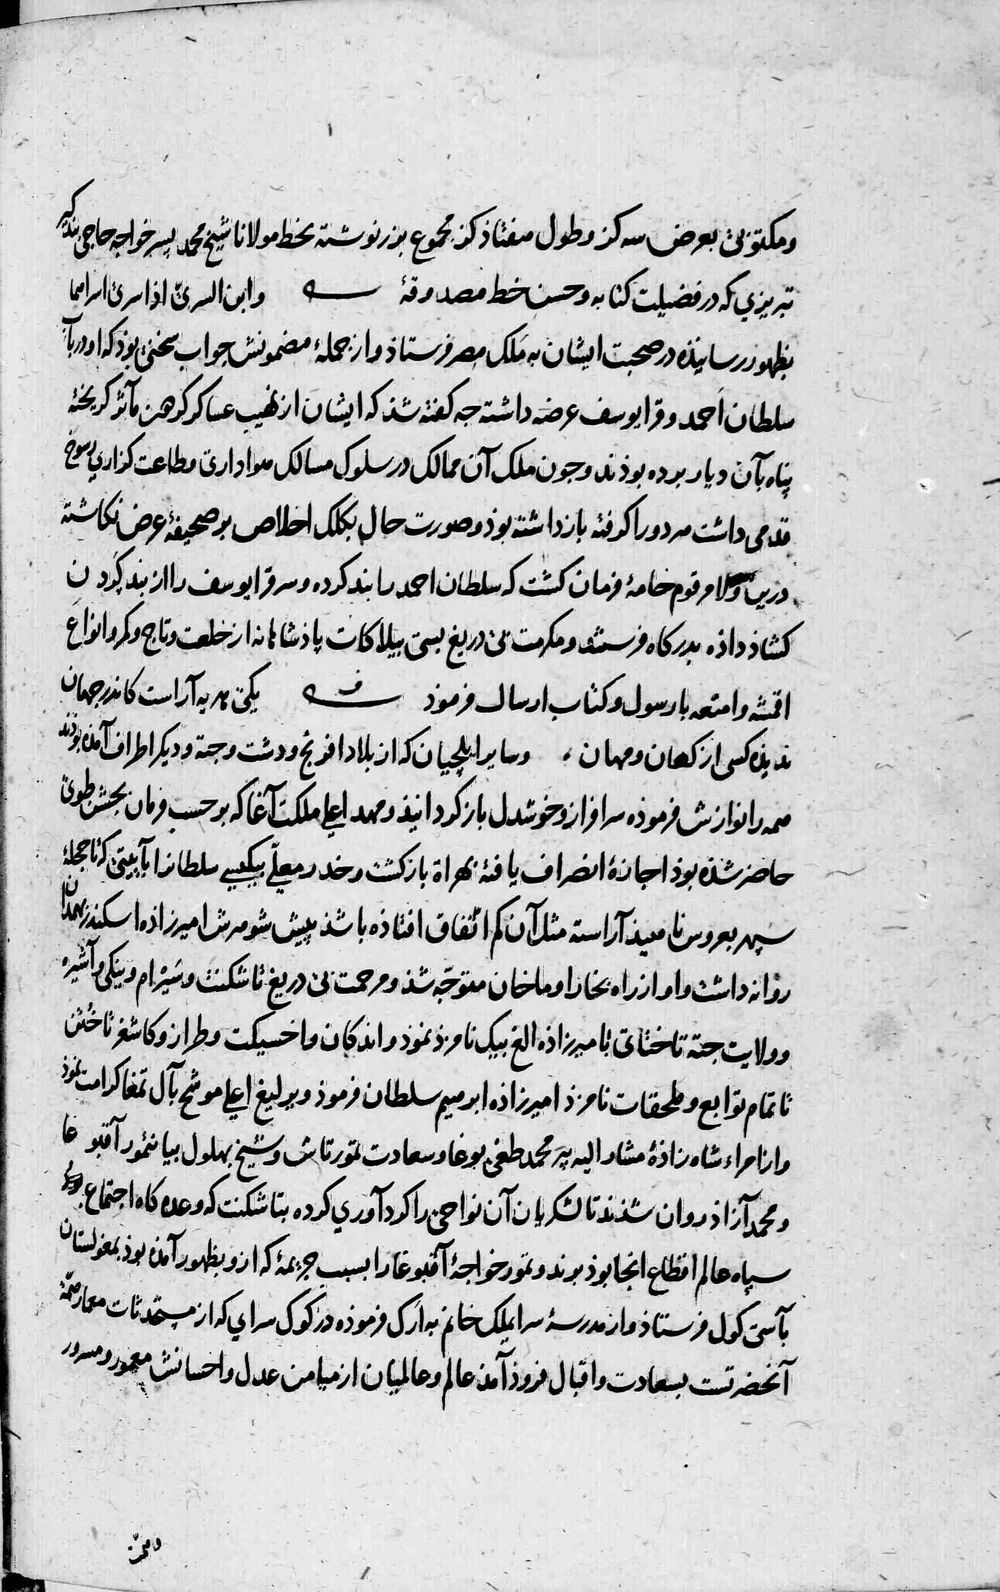 ومکتوبی بعرض سه کز وطول هفتاذ کز مجموع بزر نوشته بخط مولانا شیخ محمد پسر خواجه حاجی بندگیر
تبریزی که در فضیلت کتابه وحسن خط مصدوقهٔ وابن السریّ اذا سری اسراهما
بظهور رسانیذه در صحبت ایشان به مَلک مصر فرستاذ واز جملهٔ مضمونش جواب سخنی بوذ که او در باب
سلطان احمد وقرا یوسف عرضه داشته جه کفته شذ که ایشان از نهیب عساکر کردهن مآثر کریخته
پناه بآن دیار برده بوذند وجون ملک آن ممالک در سلوک مسالک هواداری وطاعت کزاری رسوخ
قدمی داشت هر دو را کرفته بازداشته بوذ وصورت حال بکلک اخلاص بر صحیفهٔ عرض نکاشته
درین ولا مرقوم خامهٔ فرمان کشت که سلطان احمد را بند کرده وسر قرا یوسف را از بند کردن
کشاذ داذه بدرکاه فرستد ومکرمت بی دریغ بسی بیلاکات پاذشاهانه از خلعت وتاج وکمر وانواع
اقمشه وامتعه با رسول وکتاب ارسال فرموذ ف یکی هدیه آراست کاندر جهان
ندیذه کسی از کهان ومهان ، وسایر ایلچیان که از بلاد افرنج ودشت وجته ودیکر اطراف آمذه بوذند
همه را نوازش فرموذه سرافراز وخوشدل باز کردانیذ ومهد اعلی ملکت آغا که بر حسب فرمان بجشن طوی
حاضر شذه بوذ اجازهٔ انصراف یافته بهراة باز کشت وخدر معلّی بیکیسی سلطانرا بآیینی که تا حجلهٔ
سپهر بعروس ناهیذ آراسته مثل آن کم اتفاق افتاذه باشذ پیش شوهرش امیرزاده اسکندر بهمدان
روانه داشت واو از راه بخارا وماخان متوجّه شذ ومرحمت بی دریغ تاشکنت وسَیرام وینکی وآشپره
وولایت جته تا ختای بامیرزاذه الغ بیک نامزذ نموذ واندکان واخسیکت وطراز وکاشغر تا ختن
تا تمام توابع وملحقات نامزذ امیرزاذه ابرهیم سلطان فرموذ ویرلیغ اعلی موشح بآل تمغا کرامت نموذ
واز امراء شاه زاذهٔ مشار الیه پیر محمد طغی بوغا وسعادت تمورتاش وشیخ بهلول بیانتمور آقبوغا
ومحمد آزاذ روان شذند تا لشکریان آن نواحی را کردآوری کرده بتاشکنت که وعده کاه اجتماع
سپاه عالم اقطاع انجا بوذ برند وتمور خواجهٔ آقبوغا را بسبب جریمهٔ که ازو بظهور آمذه بوذ بمغولستان
بآسی کول فرستاذ واز مدرسهٔ سرایملک خانم به ارک فرموذه در کوک سرای که از مستحدثات معمار همّة
آنحضرتست بسعادت واقبال فروذ آمذ عالم وعالمیان از میامن عدل واحسانش معمور ومسرور